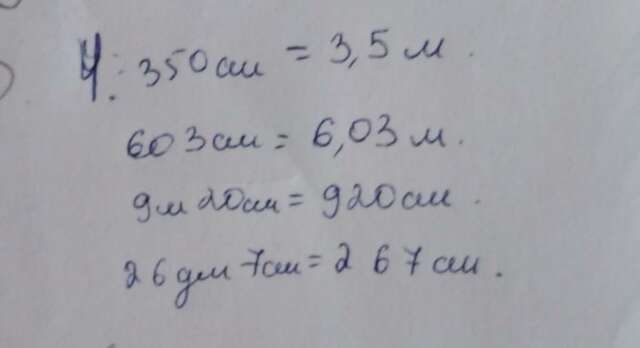 4. 350 см = 3,5 м.
603 см = 6,03 м.
9 м 20 см = 920 см.
26 дм 7 см = 267 см.